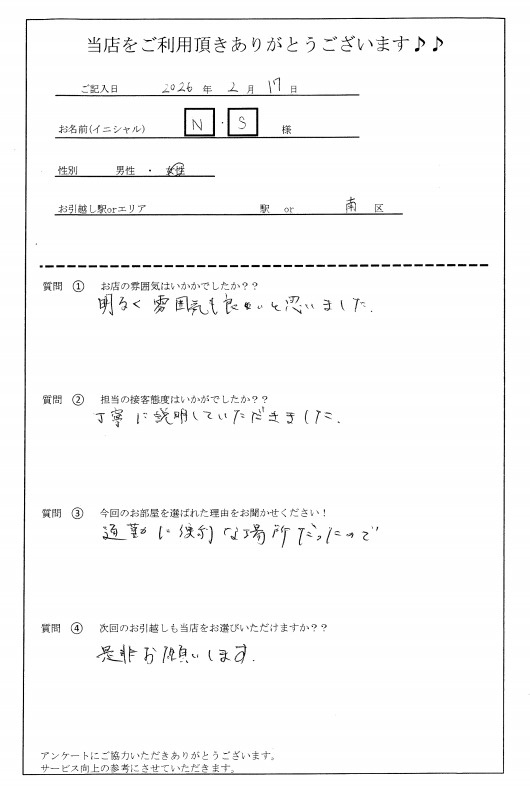 当店をご利用頂きありがとうございます♪♪
ご記入日 2026 年 2 月 17 日
お名前(イニシャル) N ・ S 様
性別 男性 ・ 女性
お引越し駅orエリア 駅 or 南 区
質問 ① お店の雰囲気はいかがでしたか??
明るく 雰囲気も良いと思いました.
質問 ② 担当の接客態度はいかがでしたか??
丁寧に説明していただきました.
質問 ③ 今回のお部屋を選ばれた理由をお聞かせください!
通勤に便利な場所だったので
質問 ④ 次回のお引越しも当店をお選びいただけますか??
是非お願いします.
アンケートにご協力いただきありがとうございます。
サービス向上の参考にさせていただきます。